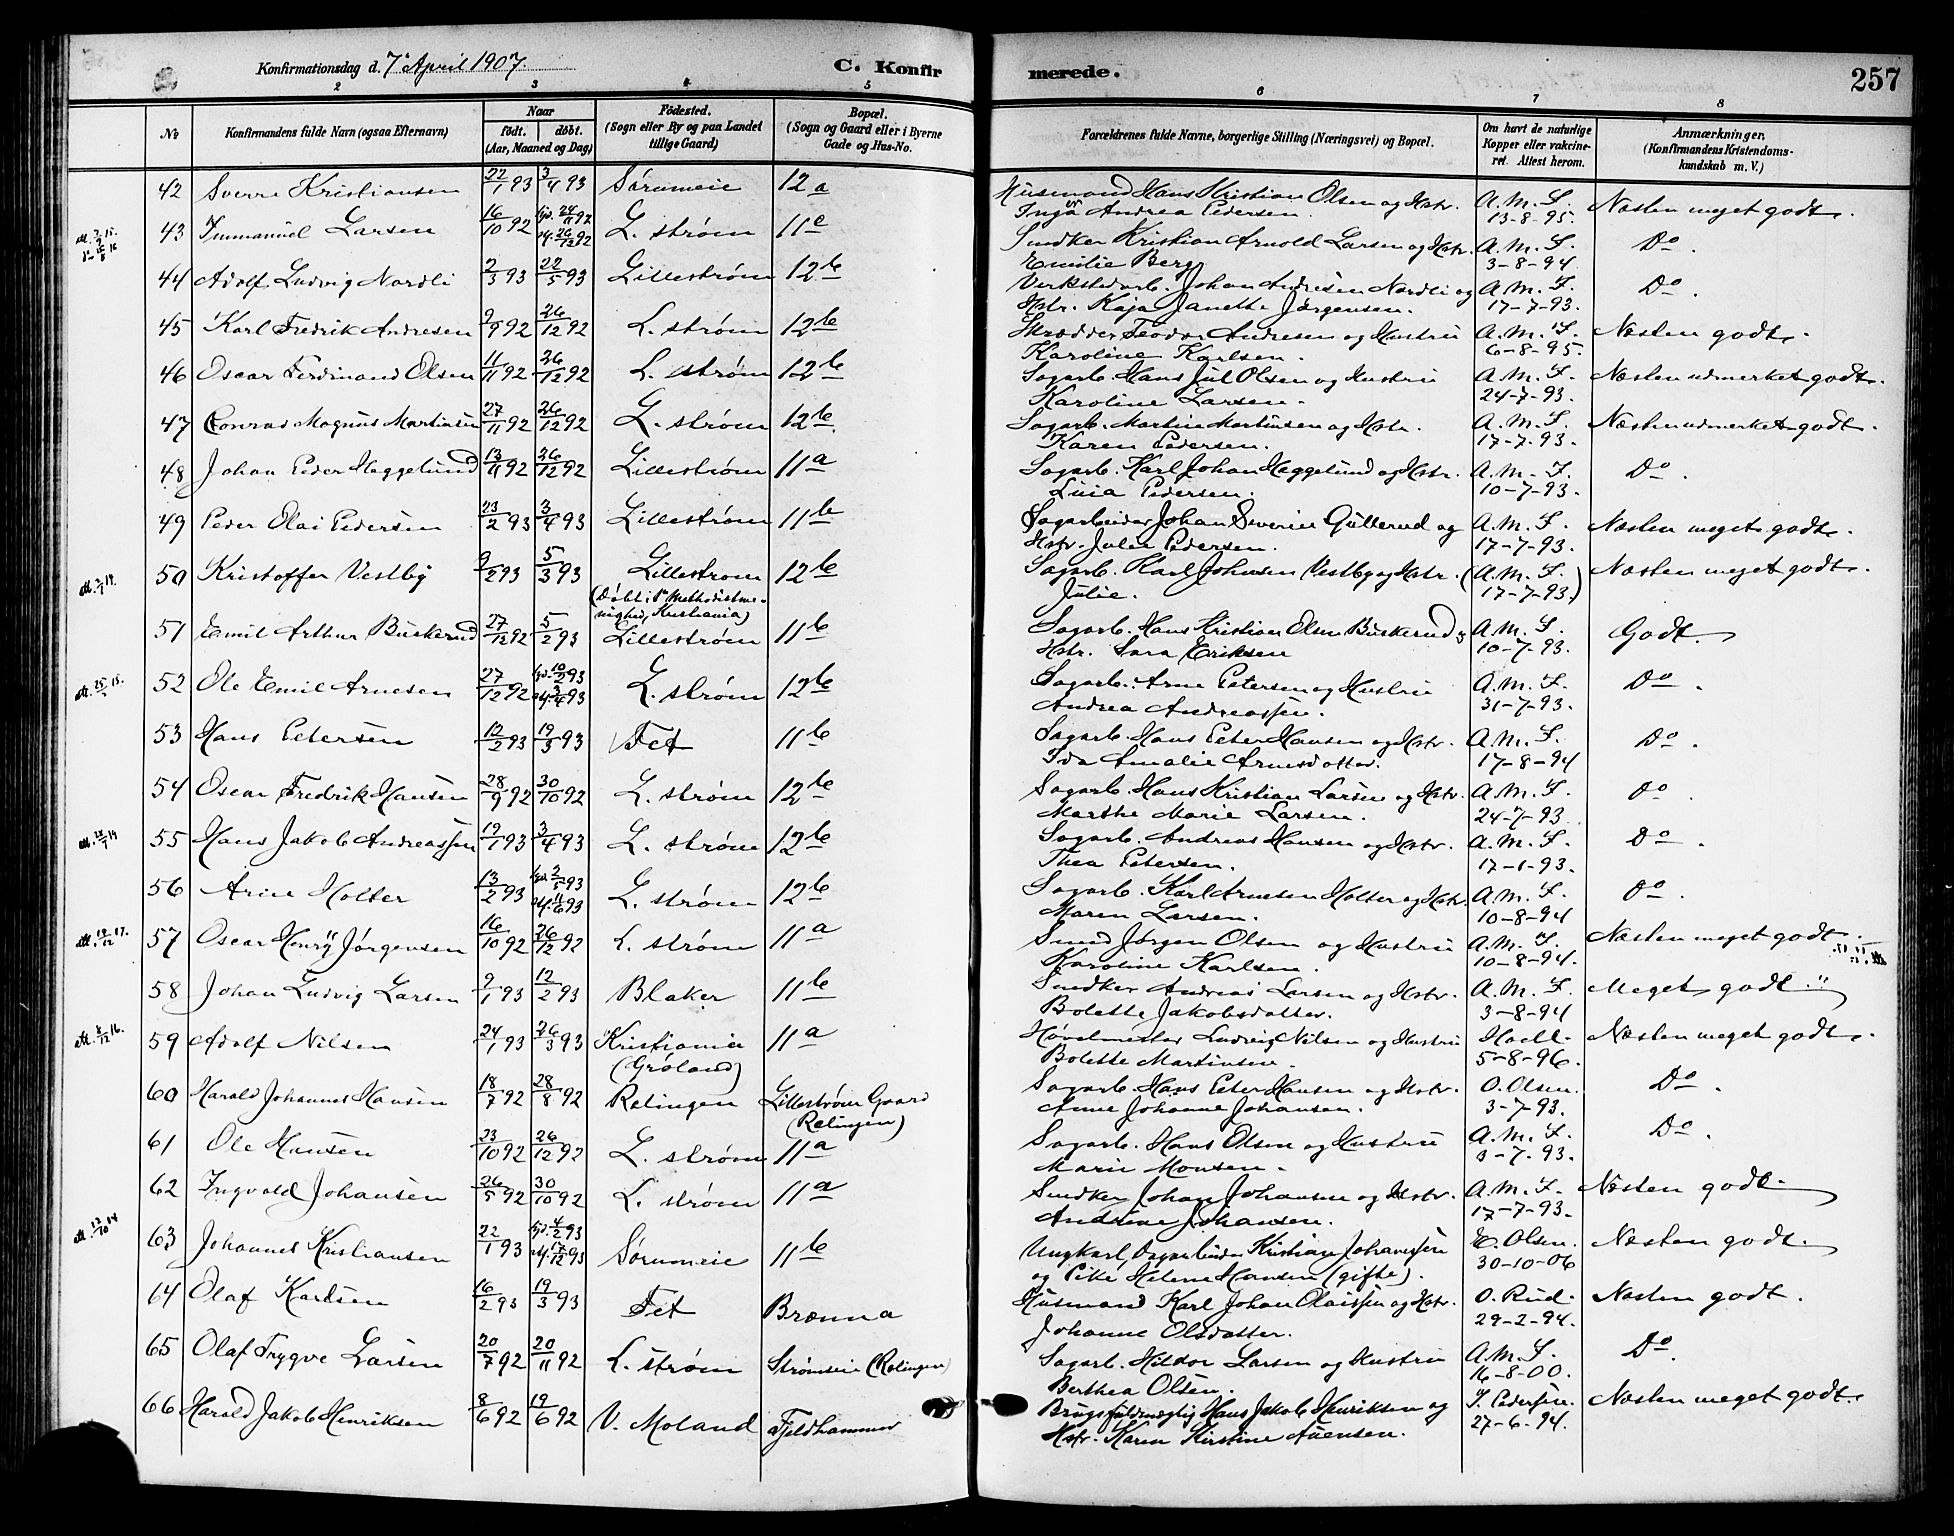 Konfirmationsdag d. 7' April 1907. C. Konfir merede. 257
2 3 4 5 6 7 8
No Konfirmandens fulde Navn (ogsaa Efternavn) Naar födt. döbt. (Aar, Maaned og Dag) Födested. (Sogn eller By og paa Landet tillige Gaard) Bopæl. (Sogn og Gaard eller i Byerne Gade og Hus-No. Forældrenes fulde Navne, borgerlige Stilling (Næringsvei) og Bopæl. Om havt de naturlige Kopper eller vaccineret. Attest herom. Anmærkninger. (Konfirmandens Kristendomskundskab m. V.)
42 Sverre Kristiansen 22/1 93 3/4 93 Sørumeie 12a Husmand Hans Kristian Olsen og Hstr. A. M. F. Næsten meget godt.
Inga Andrea Pedersen. 13-8-95.
43 Immanuel Larsen 16/10 92 hjd. 24/11 92 L. strøm 11c Snedker Kristian Arnold Larsen og Hstr. A. M. F. Do.
26/12 92 Emilie Berg 3-8-94
44 Adolf Ludvig Nordli 2/3 93 22/5 93 Lillestrøm 12b Verkstedarb. Johan Andresen Nordli og A. M. F. Do.
Hstr. Kaja Janette Jørgensen. 17-7-93.
45 Karl Fredrik Andresen 9/9 92 26/12 92 L. strøm 12b Skrædder Teodor Andresen og Hustru A. M. F. Næsten godt.
Karoline Karlsen. 6-8-95.
46 Oscar Ferdinand Olsen 11/11 92 26/12 92 L. strøm 12b Sagarb. Hans Jul Olsen og Hustru A. M. F. Næsten udmerket godt.
Karoline Larsen. 24-7-93.
47 Conrad Magnus Martinsen 27/11 92 26/12 92 L. strøm 12b Sagarb. Martin Martinsen og Hstr. A. M. F. Næsten udmerket godt.
Karen Pedersen. 17-7-93.
48 Johan Peder Haggelund 13/11 92 26/12 92 Lillestrøm 11a Sagarb. Karl Johan Haggelund og Hstr. A. M. F. Do.
Lina Pedersen. 10-7-93.
49 Peder Olai Pedersen 23/2 93 3/4 93 Lillestrøm 11b Sagarbeider Johan Severin Gullerud og A. M. F. Næsten meget godt.
Hstr. Julie Pedersen. 17-7-93.
50 Kristoffer Vestby 9/2 93 5/3 93 Lillestrøm 12b Sagarb. Karl Johnsen Vestby og Hstr. (A. M. F. Næsten meget godt.
(Døbt i Methodistmenighed, Kristiania) Julie. 17-7-93.)
51 Emil Arthur Buskerud 27/12 92 5/2 93 Lillestrøm 11b Sagarb. Hans Kristian Olsen Buskerud og A. M. F. Godt.
Hstr. Sara Eriksen 10-7-93.
52 Ole Emil Arnesen 27/12 92 hjd. 10/2 93 L. strøm 12b Sagarb. Arne Petersen og Hustru A. M. F. Do.
3/4 93 Andrea Andreassen. 31-7-93.
53 Hans Petersen 12/2 93 19/3 93 Fet 11b Sagarb. Hans Peter Hansen og Hstr. A. M. F. Do.
Ida Amalie Arnesdatter. 17-8-94
54 Oscar Fredrik Hansen 28/9 92 30/10 92 L. strøm 12b Sagarb. Hans Kristian Larsen og Hstr. A. M. F. Do.
Marthe Marie Larsen. 24-7-93
55 Hans Jakob Andreassen 19/1 93 3/4 93 L. strøm 12b Sagarb. Andreas Hansen og Hstr. A. M. F. Do.
Thea Petersen. 17-1-93.
56 Arne Holter 13/2 93 hjd. 2/5 93 L. strøm 12b Sagarb. Karl Arnesen Holter og Hstr. A. M. F. Do.
11/6 93 Maren Larsen. 10-8-94
57 Oscar Henry Jørgensen 16/10 92 26/12 92 L. strøm 11a Smed Jørgen Olsen og Hustru A. M. F. Næsten meget godt.
Karoline Karlsen. 10-8-94.
58 Johan Ludvig Larsen 9/1 93 12/2 93 Blaker 11b Snedker Andreas Larsen og Hstr. A. M. F. Meget godt.
Bolette Jakobsdatter. 3-8-94
59 Adolf Nilsen 24/1 93 26/3 93 Kristiania 11a Høvelmester Ludvig Nilsen og Hustru Næsten meget godt.
(Grøland) Bolette Martinsen. 5-8-96.
60 Harald Johannes Hansen 18/7 92 28/8 92 Rælingen Lillestrøm Gaard Sagarb. Hans Peter Hansen og Hstr. O. Olsen. Do.
(Rælingen) Anne Johanne Johansen. 3-7-93.
61 Ole Hansen 23/10 92 26/12 92 L. strøm 11a Sagarb. Hans Olsen og Hustru A. M. F. Do.
Marie Monsen. 3-7-93.
62 Ingvald Johansen 26/5 92 30/10 92 L. strøm 11a Snedker Johan Johansen og Hstr. A. M. F. Næsten godt.
Andrine Johansen. 17-7-93.
63 Johannes Kristiansen 22/1 93 hjd. 4/2 93 Sørumeie 11b Ungkarl, Sagarbeider Kristian Johannessen E. Olsen. Næsten godt.
17/12 93 og Pike Helene Hansen (gifte). 30-10-06
64 Olaf Karlsen 16/2 93 19/3 93 Fet Brænna Husmand Karl Johan Olaissen og Hstr. O. Rud. Næsten godt.
Johanne Olsdatter. 29-2-94.
65 Olaf Trygve Larsen 20/7 92 20/11 92 L. strøm Strømseie (Rælingen) Sagarb. Hildor Larsen og Hustru A. M. F. Do.
Berthea Olsen. 16-8-00.
66 Harald Jakob Henriksen 8/6 92 19/6 92 V. Moland Fjeldhammer Brugsfuldmægtig Hans Jakob Henriksen og Pedersen. Næsten meget godt.
Hstr. Karen Kirstine Auensen. 27-6-94.